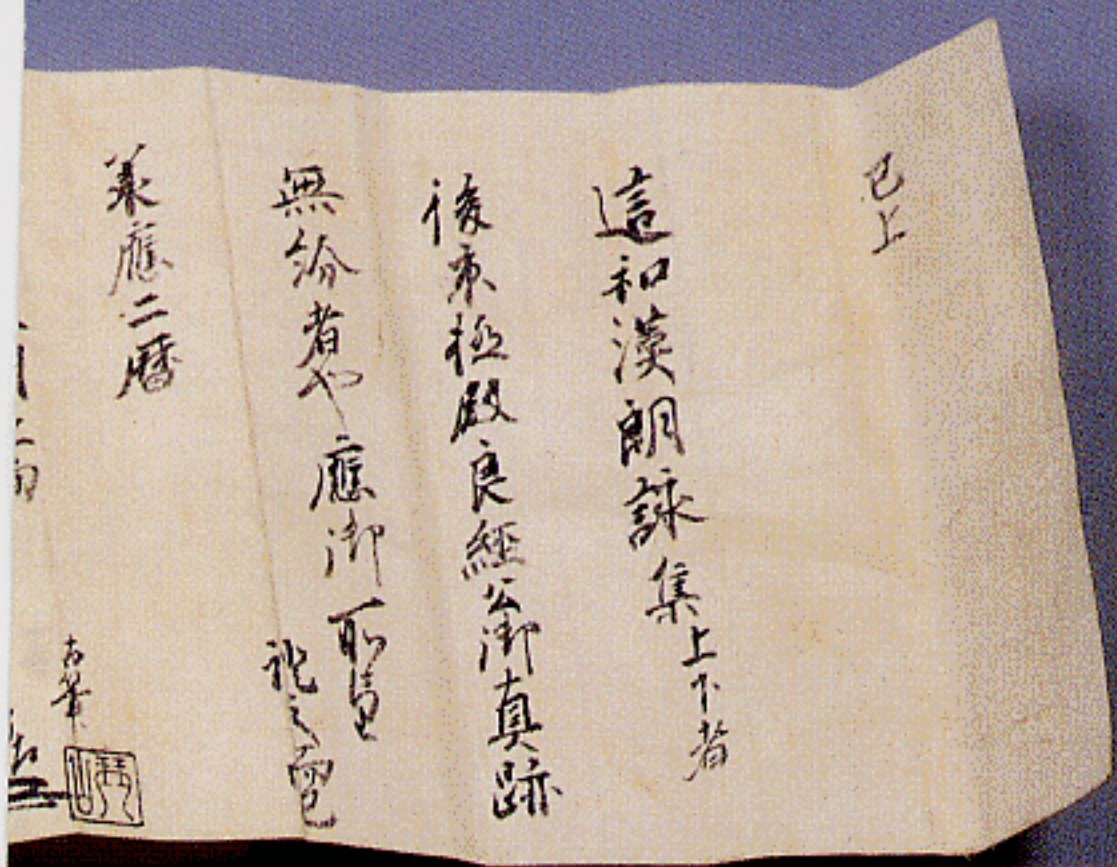 已上
這和漢朗詠集上下者
後京極殿良經公御真跡
無紛者也應御所望
之而已
承應二曆
古筆